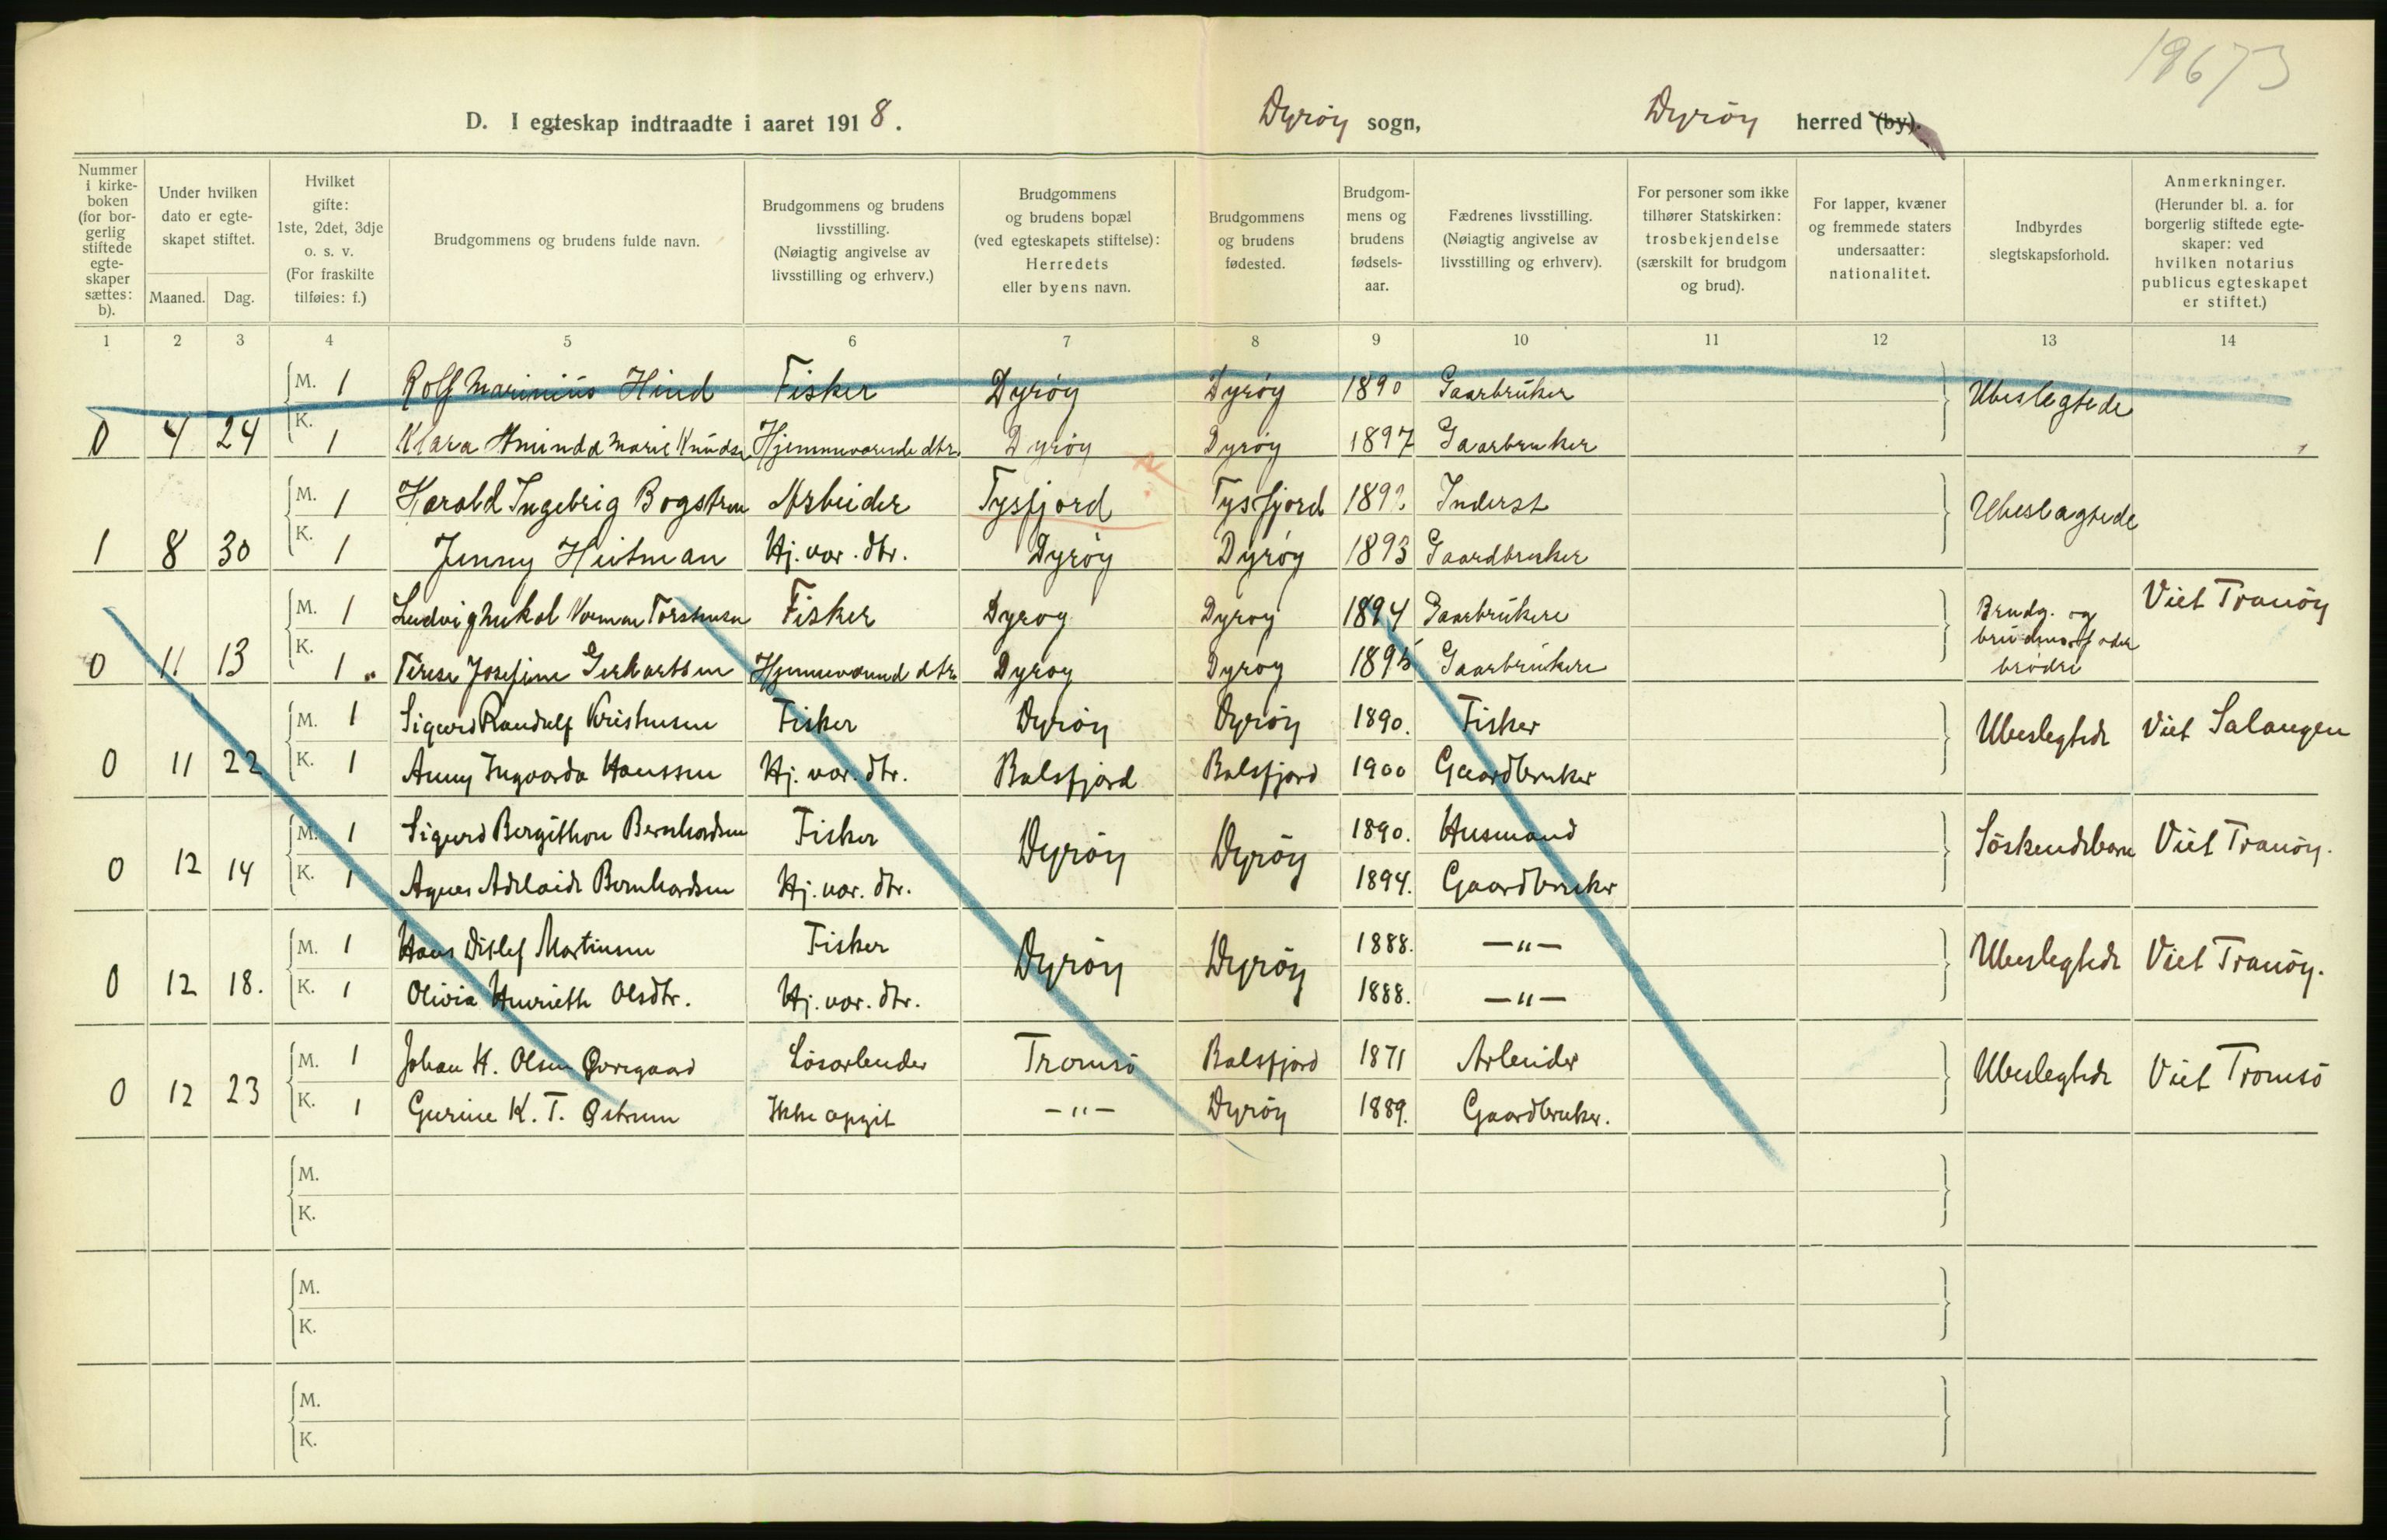 19673
D. I egteskap indtraadte i aaret 1918. Dyröy sogn, Dyröy herred (by).
Nummer i kirke-boken (for bor-gerlig stiftede egte-skaper sættes: b).
Under hvilken dato er egte-skapet stiftet.
Maaned. Dag.
Hvilket gifte: 1ste, 2det, 3dje o. s. v. (For fraskilte tilføies: f.)
Brudgommens og brudens fulde navn.
Brudgommens og brudens livsstilling. (Nøiagtig angivelse av livsstilling og erhverv.)
Brudgommens og brudens bopæl (ved egteskapets stiftelse): Herredets eller byens navn.
Brudgommens og brudens fødested.
Brudgom-mens og brudens fødsels-aar.
Fædrenes livsstilling. (Nøiagtig angivelse av livsstilling og erhverv).
For personer som ikke tilhører Statskirken: trosbekjendelse (særskilt for brudgom og brud).
For lapper, kvæner og fremmede staters undersaatter: nationalitet.
Indbyrdes slegtskapsforhold.
Anmerkninger. (Herunder bl. a. for borgerlig stiftede egte-skaper: ved hvilken notarius publicus egteskapet er stiftet.)
1 2 3 4 5 6 7 8 9 10 11 12 13 14
M. 1 Rolf Marinius Hind Fisker Dyröy Dyröy 1890 Gaarbruker Ubeslegtede
0 4 24 K. 1 Klara Aminda Marie Knudsen Hjemmeværende dtr. Dyröy Dyröy 1897 Gaarbruker
M. 1 Harald Ingebrig Bogstren Arbeider Tysfjord Tysfjord 189 Inderst Ubeslagtede
1 8 30 K. 1 Jenny Heitman Hj. vær. dtr. Dyröy Dyröy 1893 Gaardbruker
M. 1 Ludvig Torstensen Fisker Dyroy Dyroy 1894 Gaarbrukere Brudg. og Viet Tranöy
0 11 13 K. 1 Terese Josefine Gerhartsen Hjemmeværend dtr Dyroy Dyroy 1895 Gaarbrukere brödre
M. 1 Sigurd Randulf Kristensen Fisker Dyröy Dyröy 1890. Fisker Ubeslegtede Viet Salangen
0 11 22 K. 1 Anny Ingvarda Hanssen Hj. vær. dtr. Balsfjord Balsfjord 1900 Gaardbruker
M. 1 Sigurd Bergithon Bernhardsen Fisker Dyröy Dyröy 1890. Husmand Söskendebarn Viet Tranöy.
0 12 14 K. 1 Agnes Adelaide Bernhardsen Hj. vær. dtr. 1894. Gaardbruker
M. 1 Hans Ditlef Martinsen Fisker Dyröy Dyröy 1888. —"— Ubeslegtede Viet Tranöy.
0 12 18. K. 1 Olivia Henriette Olsdtr. Hj. vær. dtr. 1888. —"—
M. 1 Johan H. Olsen Övregaard Lösarbeider Tromsö Balsfjord 1871 Arbeider Ubeslegtede Viet Tromsö
0 12 23 K. 1 Gurine K. T. Östrem Ikke opgit —"— Dyröy 1889. Gaardbruker.
M.
K.
M.
K.
M.
K.